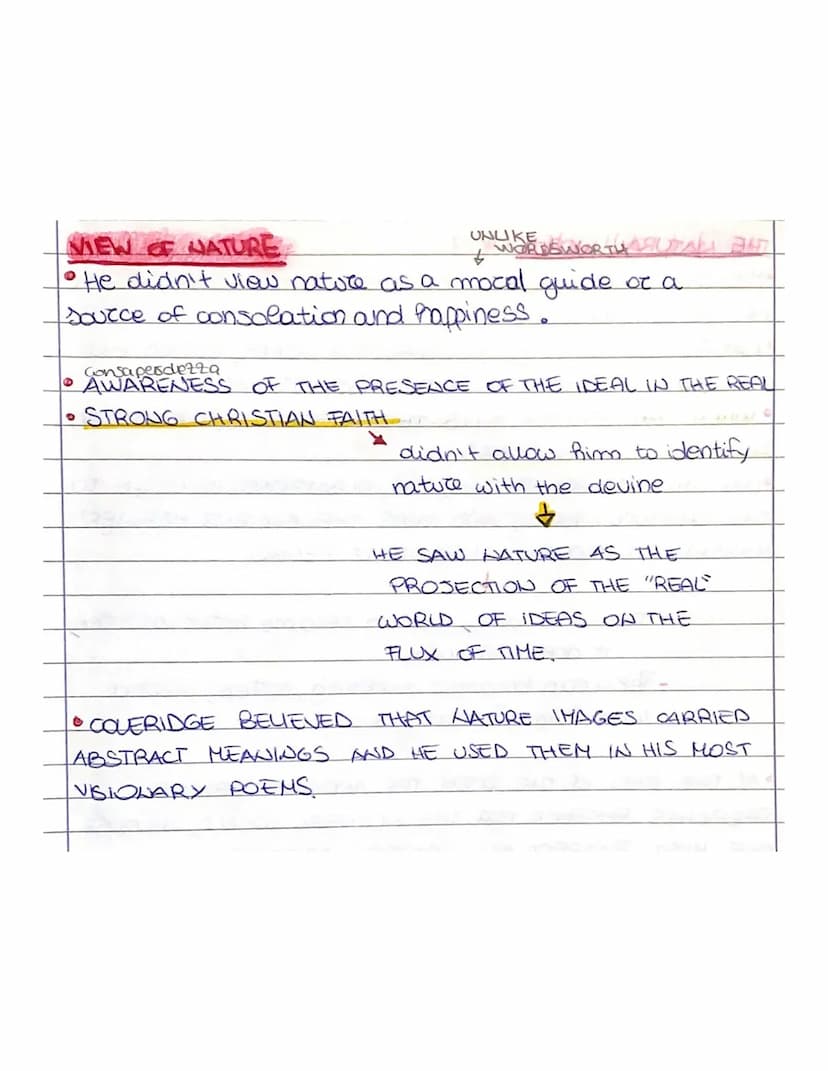 VIEW OF NATURE
UNLIKE
WORDSWORTH
• He didn't view nature as a moral guide or a
source of consolation and happiness.
consapevolezza
• AWARENESS OF THE PRESENCE OF THE IDEAL IN THE REAL
• STRONG CHRISTIAN FAITH
didn't allow him to identify
nature with the devine
HE SAW NATURE AS THE
PROJECTION OF THE "REAL"
WORLD OF IDEAS ON THE
FLUX OF TIME.
• COLERIDGE BELIEVED THAT NATURE IMAGES CARRIED
ABSTRACT MEANINGS AND HE USED THEM IN HIS MOST
VISIONARY POEMS.